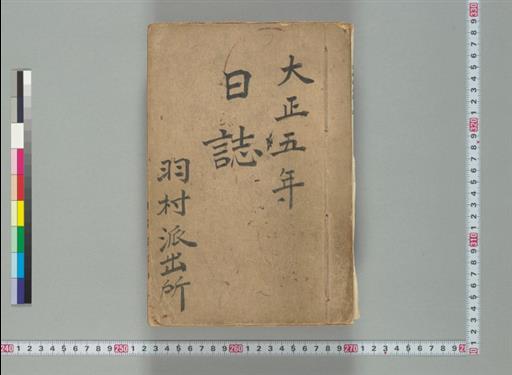 大正五年
日誌
羽村派出所